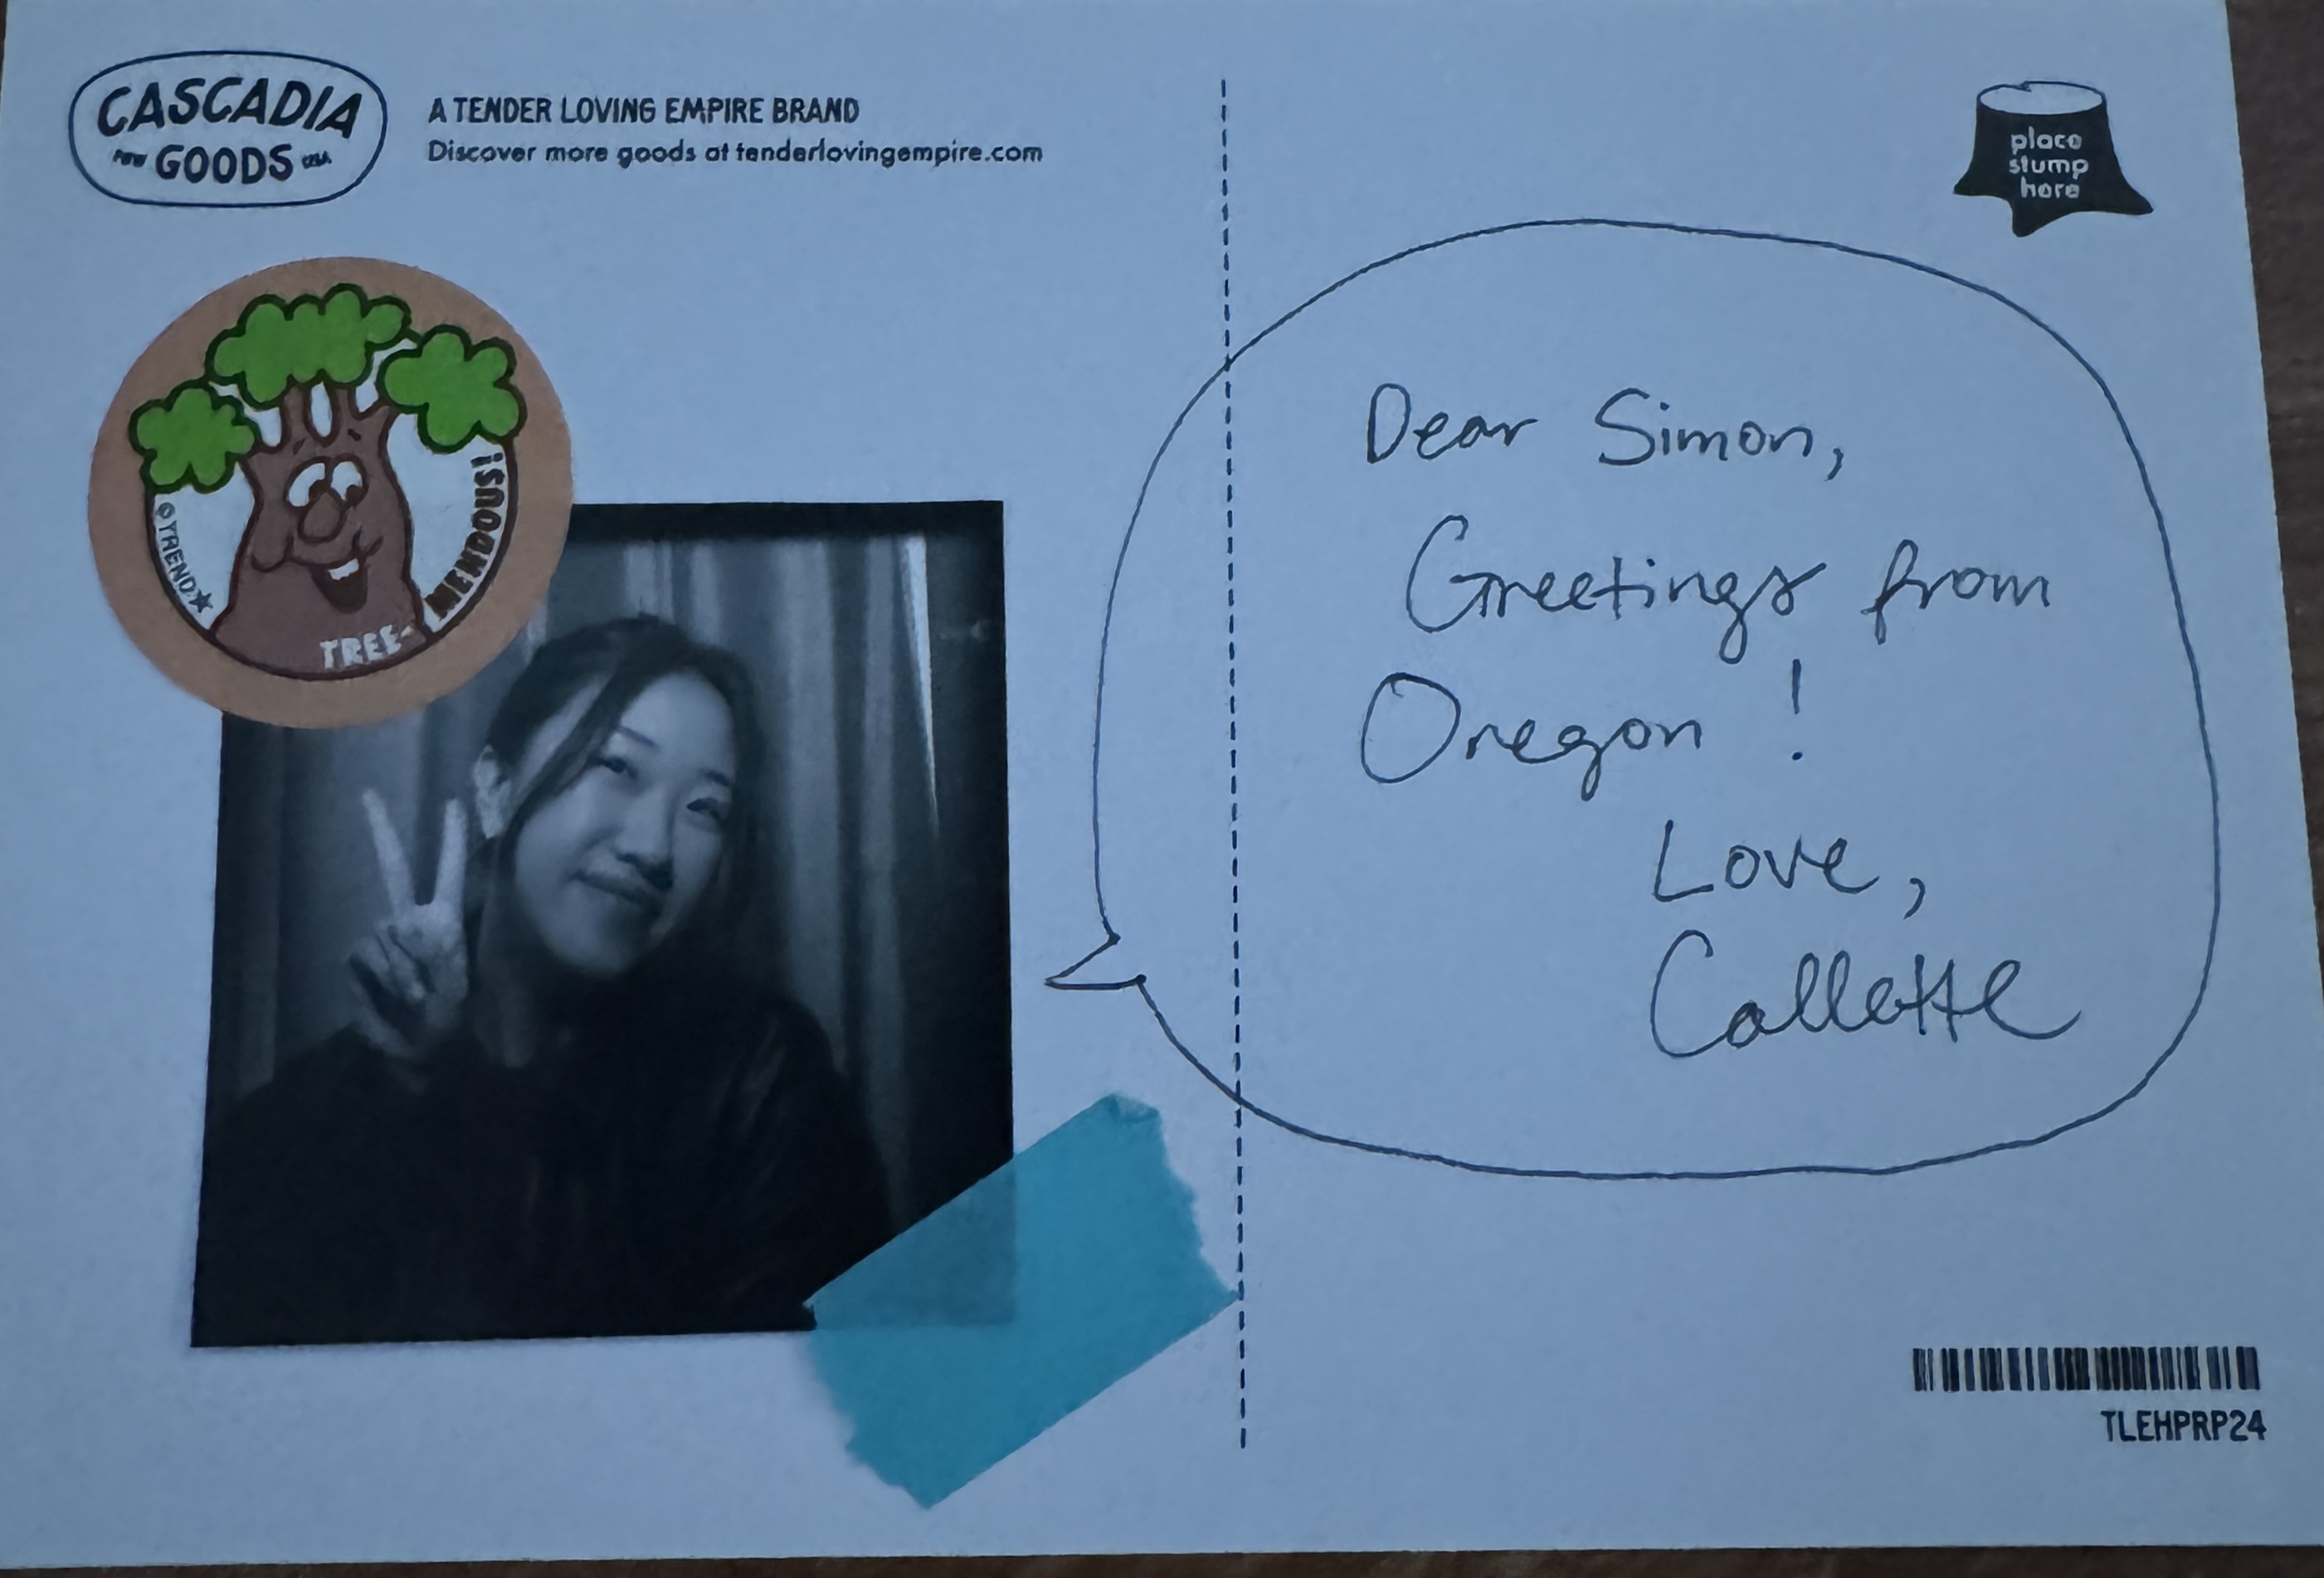 CASCADIA
PNW GOODS USA
A TENDER LOVING EMPIRE BRAND
Discover more goods at tenderlovingempire.com
place
stump
here
©TREND★
TREE-
MENDOUS!
Dear Simon,
Greetings from
Oregon !
Love,
Collette
TLEHPRP24